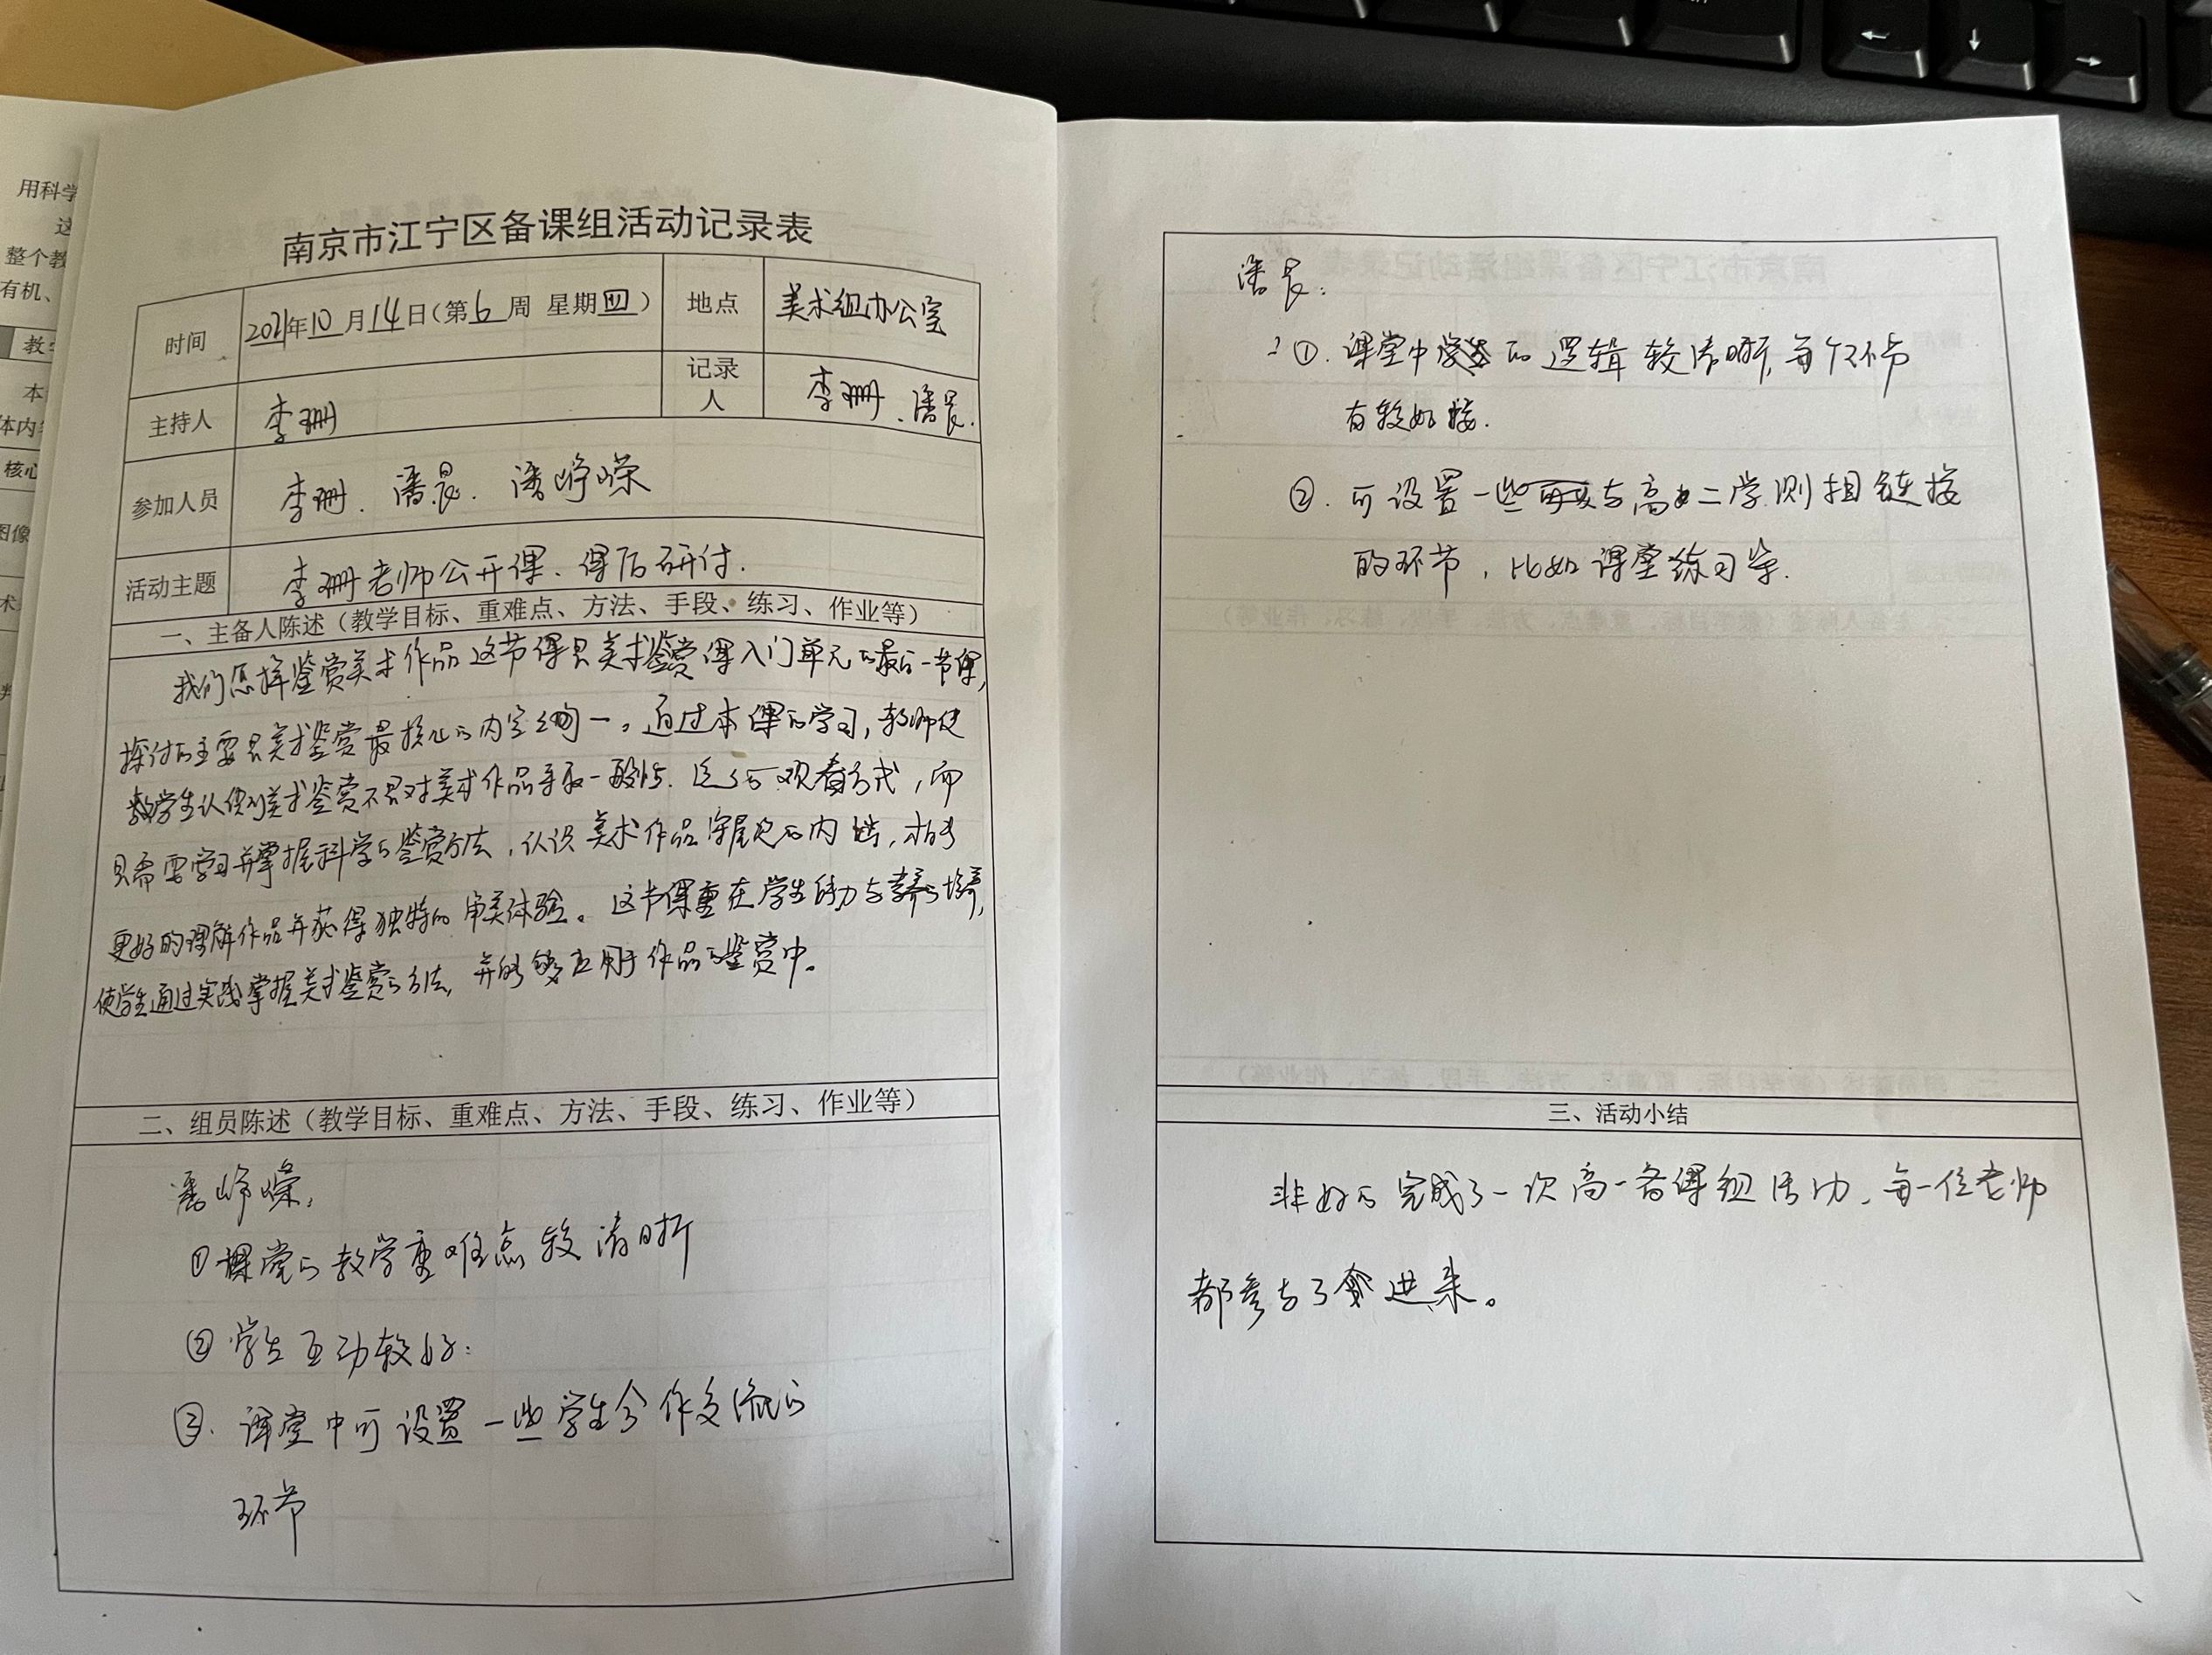 用科学
这
整个教
有机、
教学
本
体内
核心
图像
术
南京市江宁区备课组活动记录表
时间 2021年10月14日(第6周 星期四) 地点 美术组办公室
主持人 李珊 记录人 李珊、潘晨.
参加人员 李珊. 潘晨. 潘峥嵘
活动主题 李珊老师公开课、课后研讨.
一、主备人陈述(教学目标、重难点、方法、手段、练习、作业等)
我们怎样鉴赏美术作品这节课是美术鉴赏课入门单元的最后一节课,
探讨的主要是美术鉴赏最核心的内容之一。通过本课的学习,教师使
学生认识到美术鉴赏不是对美术作品采取一般性. 的观看方式,而
是需要学习并掌握科学的鉴赏方法,认识美术作品深层次的内涵,才能
更好的理解作品并获得独特的审美体验。这节课重在学生能力与素养的培养,
使学生通过实践掌握美术鉴赏的方法,并能够应用于作品的鉴赏中。
二、组员陈述(教学目标、重难点、方法、手段、练习、作业等)
潘峥嵘:
①课堂的教学重难点较清晰
②学生互动较好:
③. 课堂中可设置一些学生合作交流的
环节
潘晨:
①. 课堂中的逻辑较清晰,每个环节
有较好接.
②. 可设置一些与高二学测相链接
的环节,比如课堂练习等.
三、活动小结
非好的完成了一次高一备课组活动,每一位老师
都参与了进来。